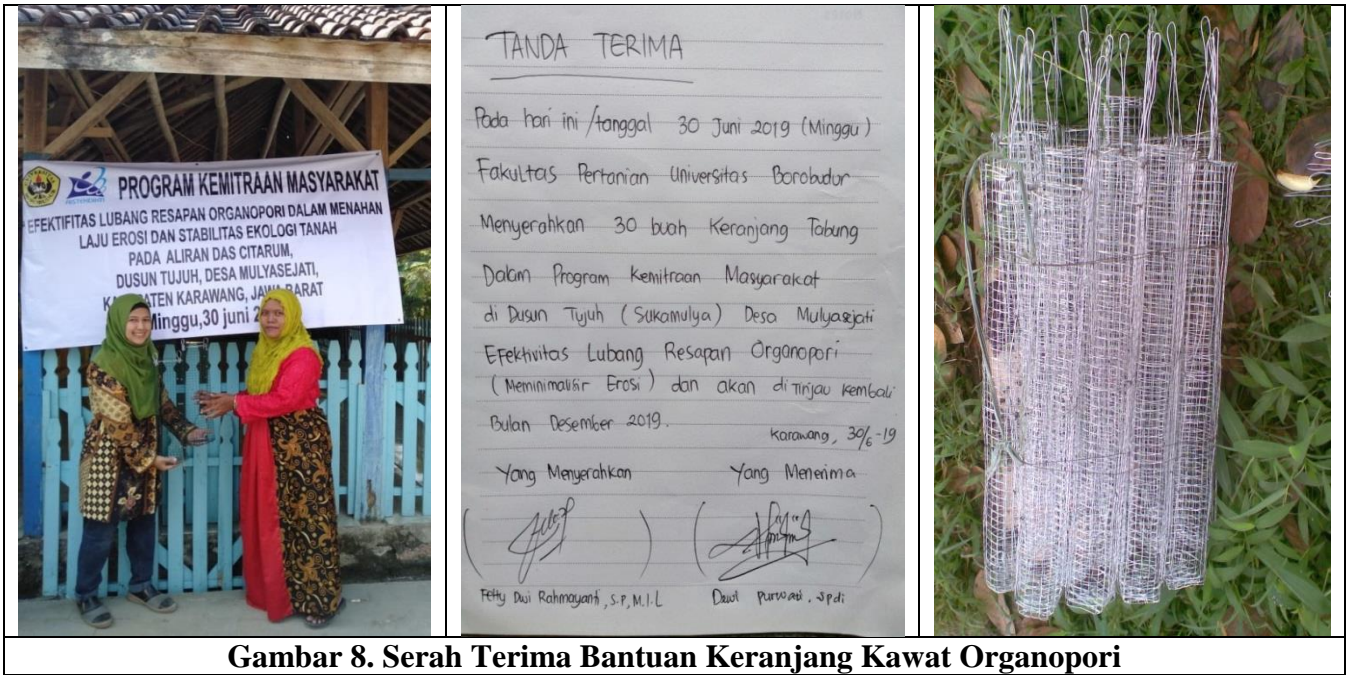 PROGRAM KEMITRAAN MASYARAKAT
EFEKTIFITAS LUBANG RESAPAN ORGANOPORI DALAM MENAHAN
LAJU EROSI DAN STABILITAS EKOLOGI TANAH
PADA ALIRAN DAS CITARUM,
DUSUN TUJUH, DESA MULYASEJATI,
KARAWANG, JAWA BARAT
Minggu,30 juni
TANDA TERIMA
Pada hari ini / tanggal 30 Juni 2019 (Minggu)
Fakultas Pertanian Universitas Borobudur
Menyerahkan 30 buah Keranjang Tabung
Dalam Program Kemitraan Masyarakat
di Dusun Tujuh (Sukamulya) Desa Mulyasejati
Efektivitas Lubang Resapan Organopori
(Meminimalisir Erosi) dan akan di Tinjau Kembali
Bulan Desember 2019.
Karawang, 30/6-19
Yang Menyerahkan Yang Menerima
Fetty Dwi Rahmayanti, S.P, M.I.L Dewi Purwati, Spdi
Gambar 8. Serah Terima Bantuan Keranjang Kawat Organopori